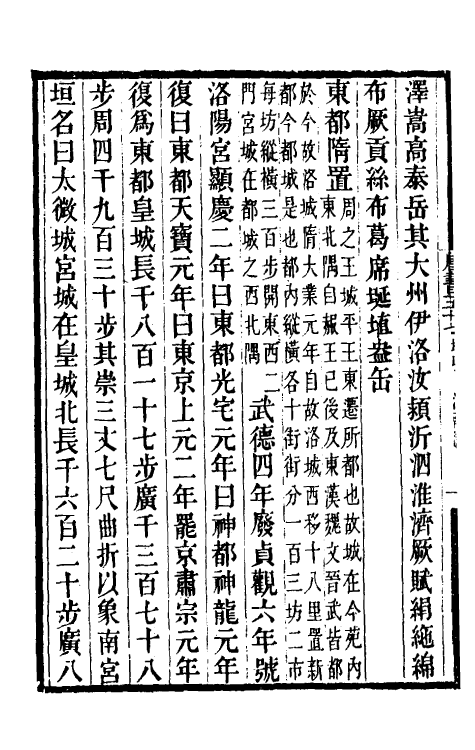 澤嵩高泰岳其大州伊洛汝潁沂泗淮濟厥賦絹絁綿
布厥貢絲布葛席埏埴盎缶
東都隋置
周之王城平王東遷所都也故城在今苑內
東北隅自赧王已後及東漢魏文晉武皆都
於今故洛城隋大業元年自故洛城西移十八里置新
都今都城是也都內縱橫各十街街分一百三坊二市
每坊縱橫三百步開東西二
門宮城在都城之西北隅
武德四年廢貞觀六年號
洛陽宮顯慶二年曰東都光宅元年曰神都神龍元年
復曰東都天寶元年曰東京上元二年罷京肅宗元年
復爲東都皇城長千八百一十七步廣千三百七十八
步周四千九百三十步其崇三丈七尺曲折以象南宮
垣名曰太微城宮城在皇城北長千六百二十步廣八